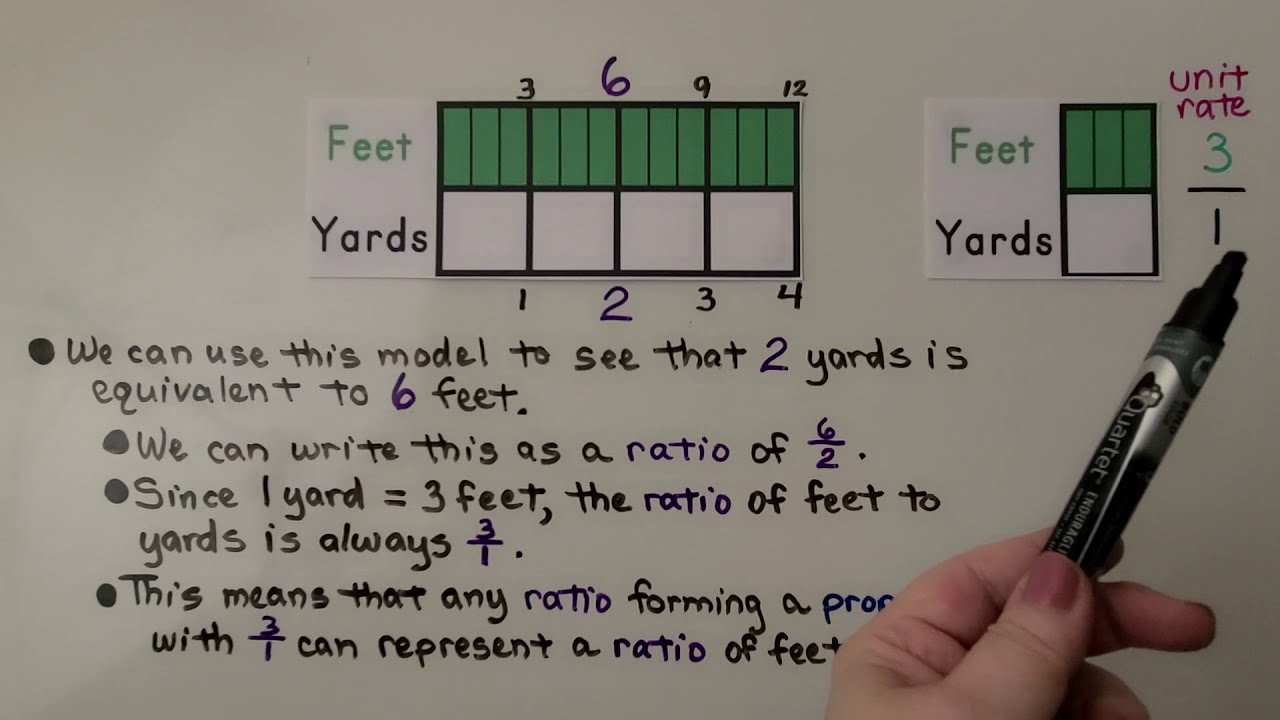 3 6 9 12
Feet
Yards
1 2 3 4
Feet
Yards
unit
rate
3
1
● We can use this model to see that 2 yards is
equivalent to 6 feet.
● We can write this as a ratio of 6/2.
● Since 1 yard = 3 feet, the ratio of feet to
yards is always 3/1.
● This means that any ratio forming a
with 3/1 can represent a ratio of feet
Quartet